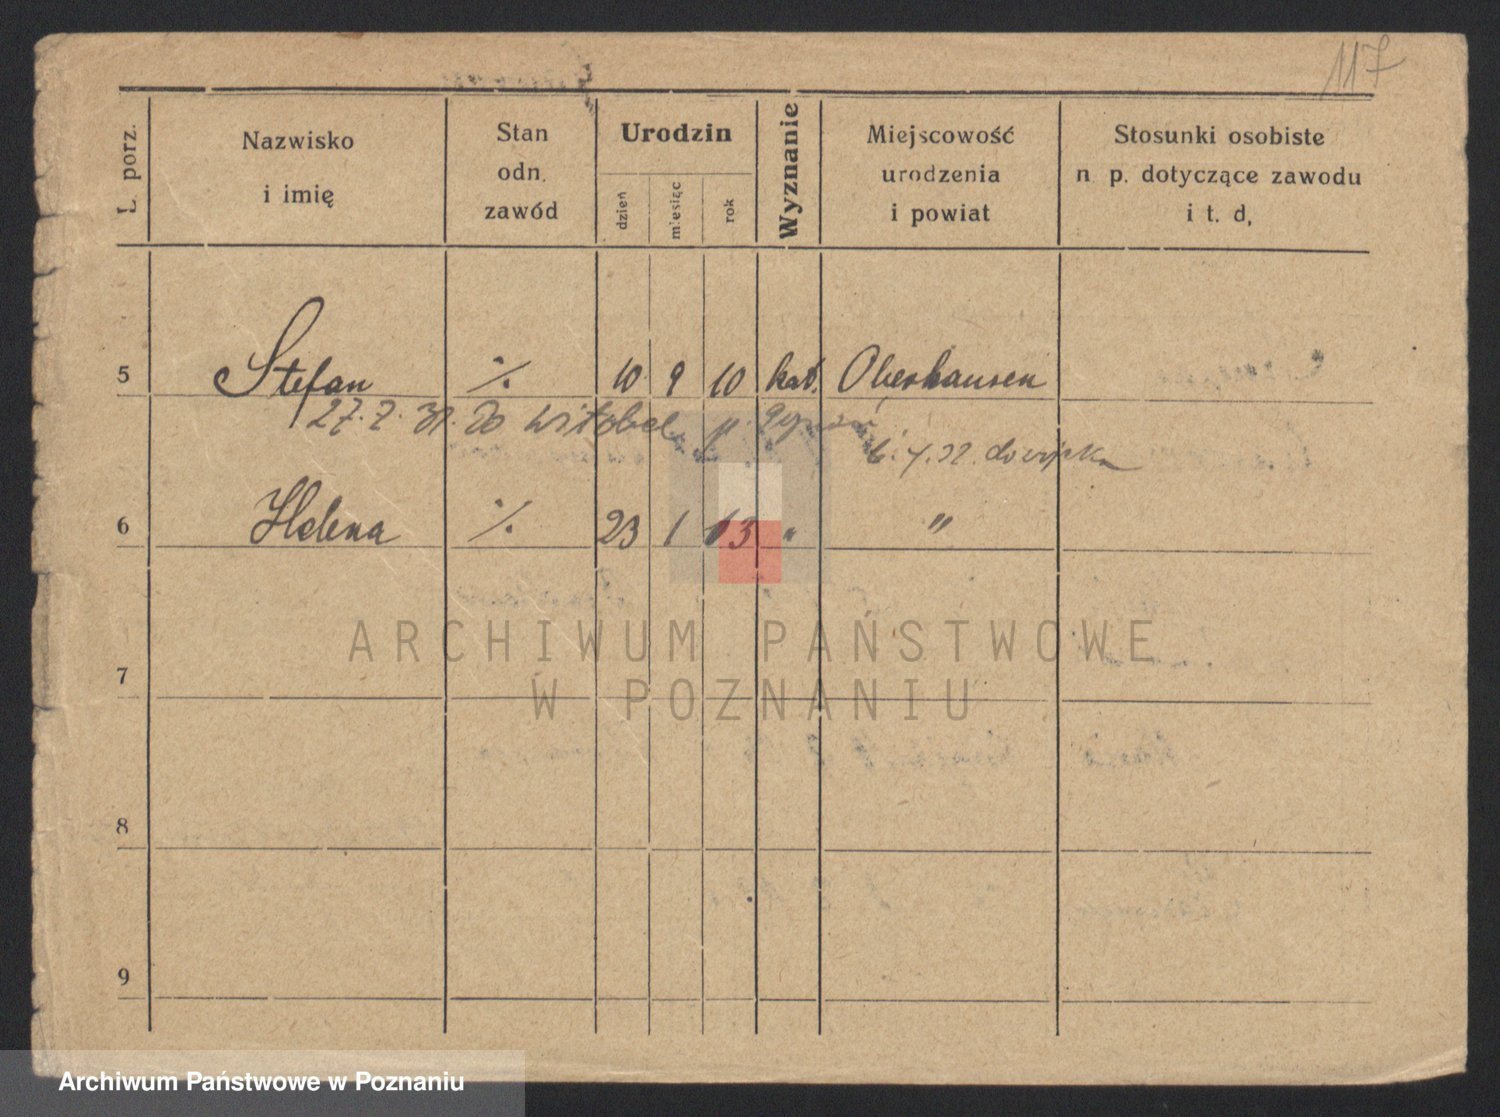 117
L. porz.
Nazwisko
i imię
Stan
odn.
zawód
Urodzin
dzień
miesiąc
rok
Wyznanie
Miejscowość
urodzenia
i powiat
Stosunki osobiste
n. p. dotyczące zawodu
i t. d,
5 Stefan ·/. 10 9 10 kat. Oberhausen
27. 7. 31. do
6 Helena ·/. 23 1 13 " "
7
8
9
ARCHIWUM PAŃSTWOWE
W POZNANIU
Archiwum Państwowe w Poznaniu